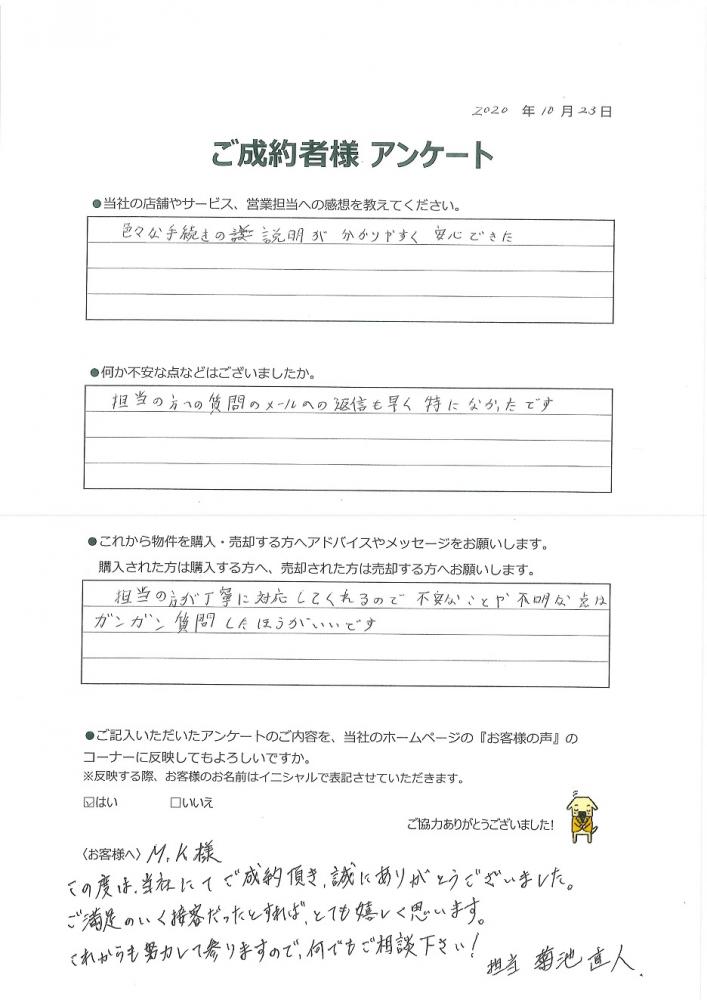 2020 年 10 月 23日
ご成約者様 アンケート
●当社の店舗やサービス、営業担当への感想を教えてください。
色々な手続きの 説明が 分かりやすく 安心できた
●何か不安な点などはございましたか。
担当の方への質問のメールへの返信も早く 特に なかったです
●これから物件を購入・売却する方へアドバイスやメッセージをお願いします。
購入された方は購入する方へ、売却された方は売却する方へお願いします。
担当の方が丁寧に対応してくれるので 不安なことや不明な点は
ガンガン質問したほうがいいです
●ご記入いただいたアンケートのご内容を、当社のホームページの『お客様の声』の
コーナーに反映してもよろしいですか。
※反映する際、お客様のお名前はイニシャルで表記させていただきます。
☑はい □いいえ
ご協力ありがとうございました!
〈お客様へ〉 M.K様
この度は、当社にてご成約頂き、誠にありがとうございました。
ご満足のいく接客だったとすれば、とても嬉しく思います。
これからも努力して参りますので、何でもご相談下さい!
担当 菊池直人.